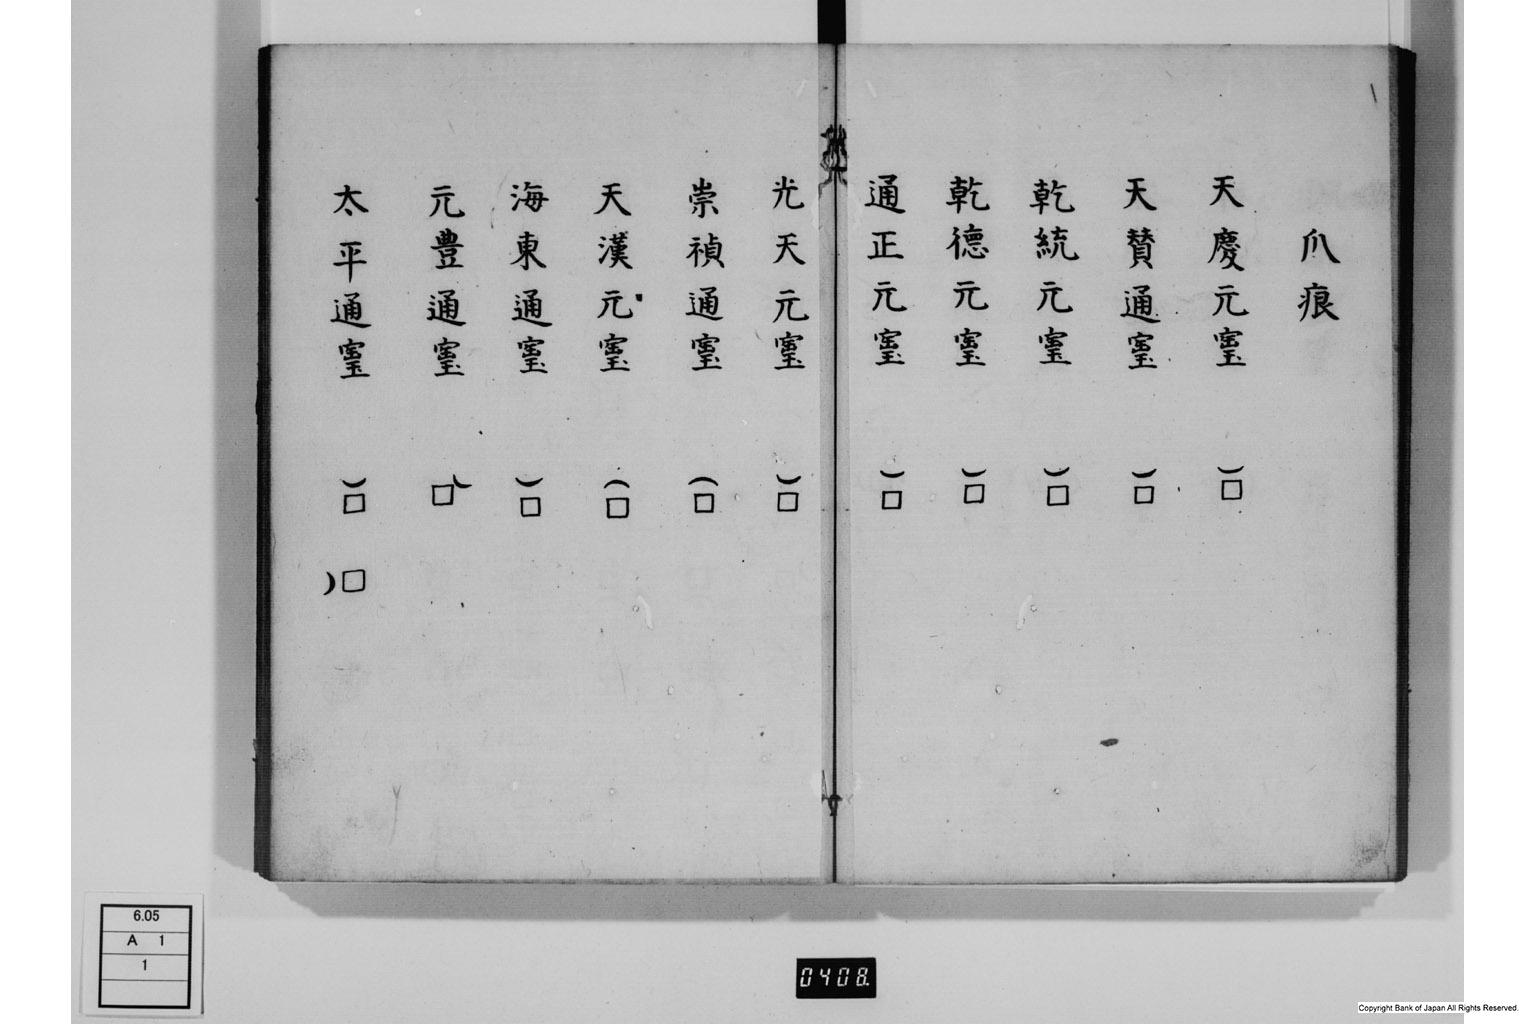 爪痕
天慶元寳
天賛通寳
乾統元寳
乾德元寳
通正元寳
光天元寳
崇禎通寳
天漢元寳
海東通寳
元豊通寳
太平通寳
6.05
A 1
1
0408
Copyright Bank of Japan All Rights Reserved.